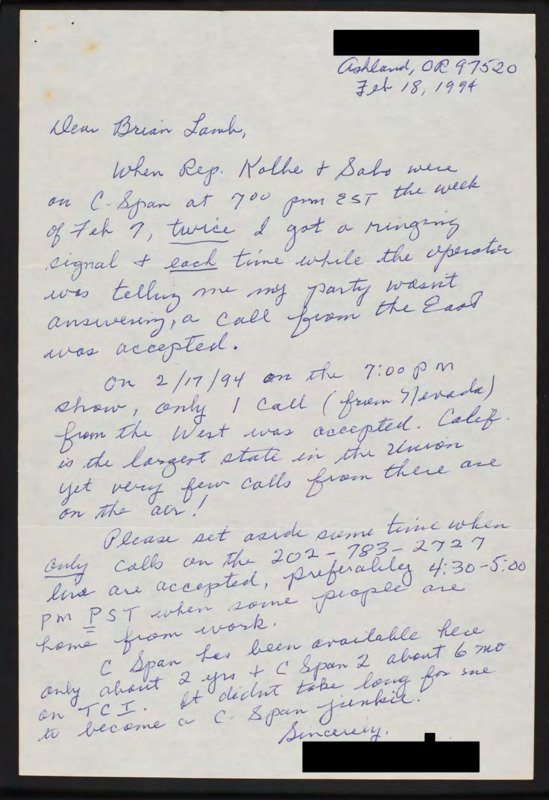 Ashland, OR 97520
Feb 18, 1994
Dear Brian Lamb,
When Rep. Kolbe & Sabo were
on C-Span at 700 pm EST the week
of Feb 7, twice I got a ringing
signal & each time while the operator
was telling me my party wasn't
answering, a call from the East
was accepted.
On 2/17/94 on the 7:00 PM
show, only 1 call (from Nevada)
from the West was accepted. Calif.
is the largest state in the Union
yet very few calls from there are
on the air!
Please set aside some time when
only calls on the 202-783-2727
line are accepted, preferabley 4:30-5:00
pm PST when some people are
home from work.
C Span has been available here
only about 2 yrs & C Span 2 about 6 mo
on TCI. It didn't take long for me
to become a C-Span junkie.
Sincerely,